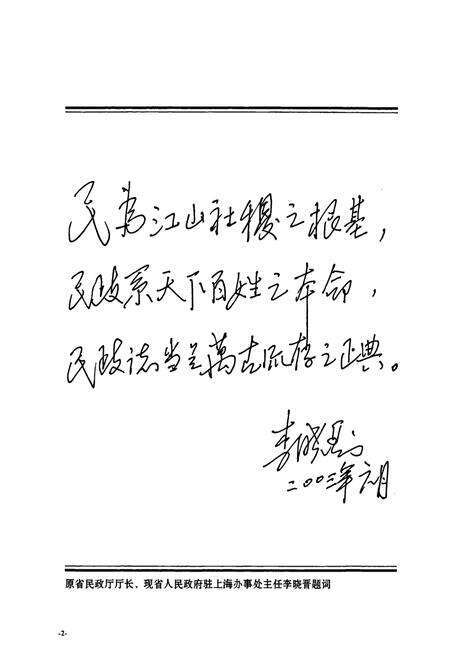 民为江山社稷之根基，
民政系天下百姓之本命，
民政志当是萬古流存之正典。
李晓晋
二00三年六月
原省民政厅厅长、现省人民政府驻上海办事处主任李晓晋题词
-2-